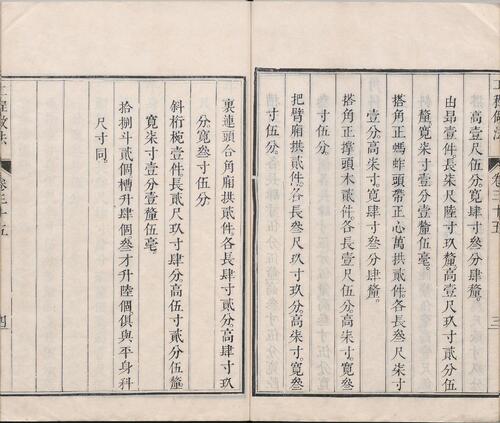 工程做法
卷三十五
三
搭高壹尺伍分寬肆寸叁分肆釐。
由昂壹件長柒尺陸寸玖釐高壹尺伍寸貳分伍
釐寬柒寸壹分壹釐伍毫。
搭角正螞蚱頭帶正心萬拱貳件各長叁尺柒寸
壹分高柒寸。寬肆寸叁分肆釐。
搭角正撐頭木貳件。各長壹尺伍分。高柒寸。寬叁
寸伍分。
把臂廂拱貳件。各長叁尺玖寸玖分。高柒寸。寬叁
寸伍分。
裏連頭合角廂拱貳件各長肆寸貳分。高肆寸玖
分寬叁寸伍分
斜桁椀壹件長貳尺玖寸肆分高伍寸貳分伍釐
寬柒寸壹分壹釐伍毫。
拾捌斗貳個槽升肆個叁才升陸個俱與平身科
尺寸同。
工程做法
卷三十五
四